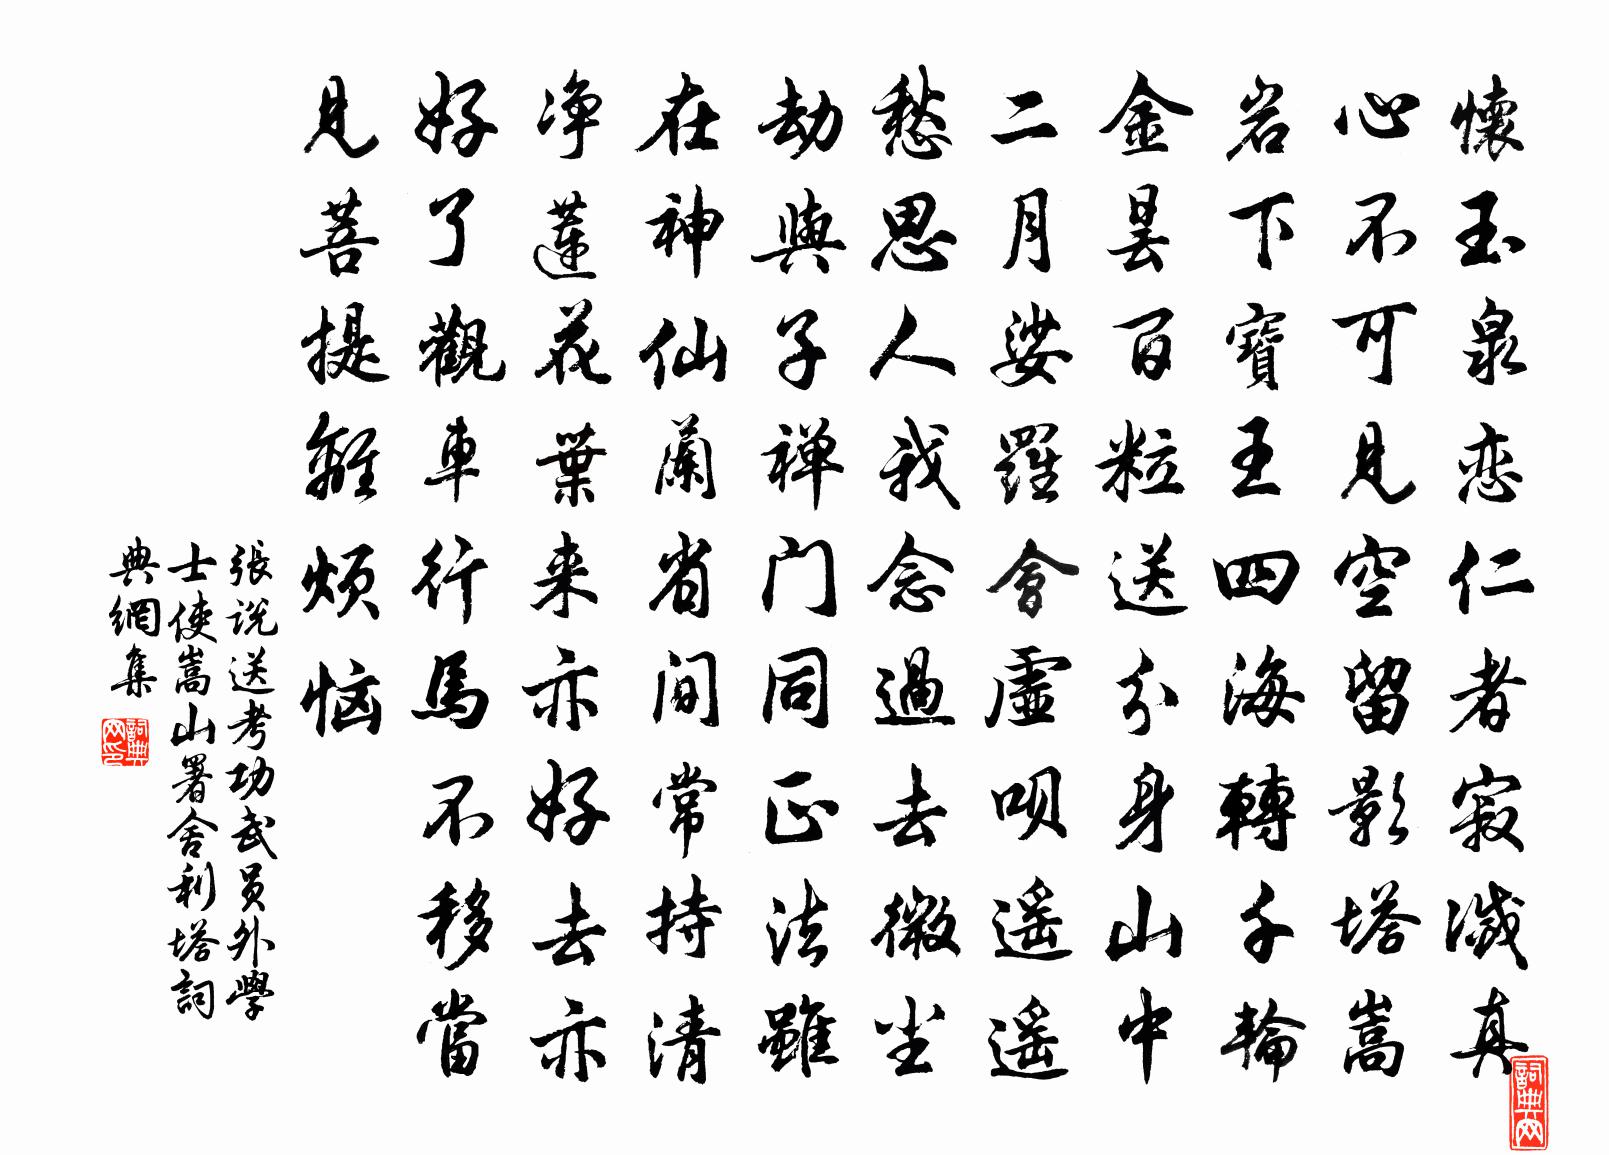 懷玉泉恋仁者寂滅真
心不可見空留影塔嵩
岩下寶王四海轉千輪
金曇百粒送分身山中
二月娑羅會虛唄遥遥
愁思人我念過去微塵
劫與子禅门同正法雖
在神仙蘭省间常持清
净蓮花葉来亦好去亦
好了觀車行馬不移當
見菩提離烦恼
張说送考功武员外學
士使嵩山署舍利塔詞
典網集
詞典网印
詞典网